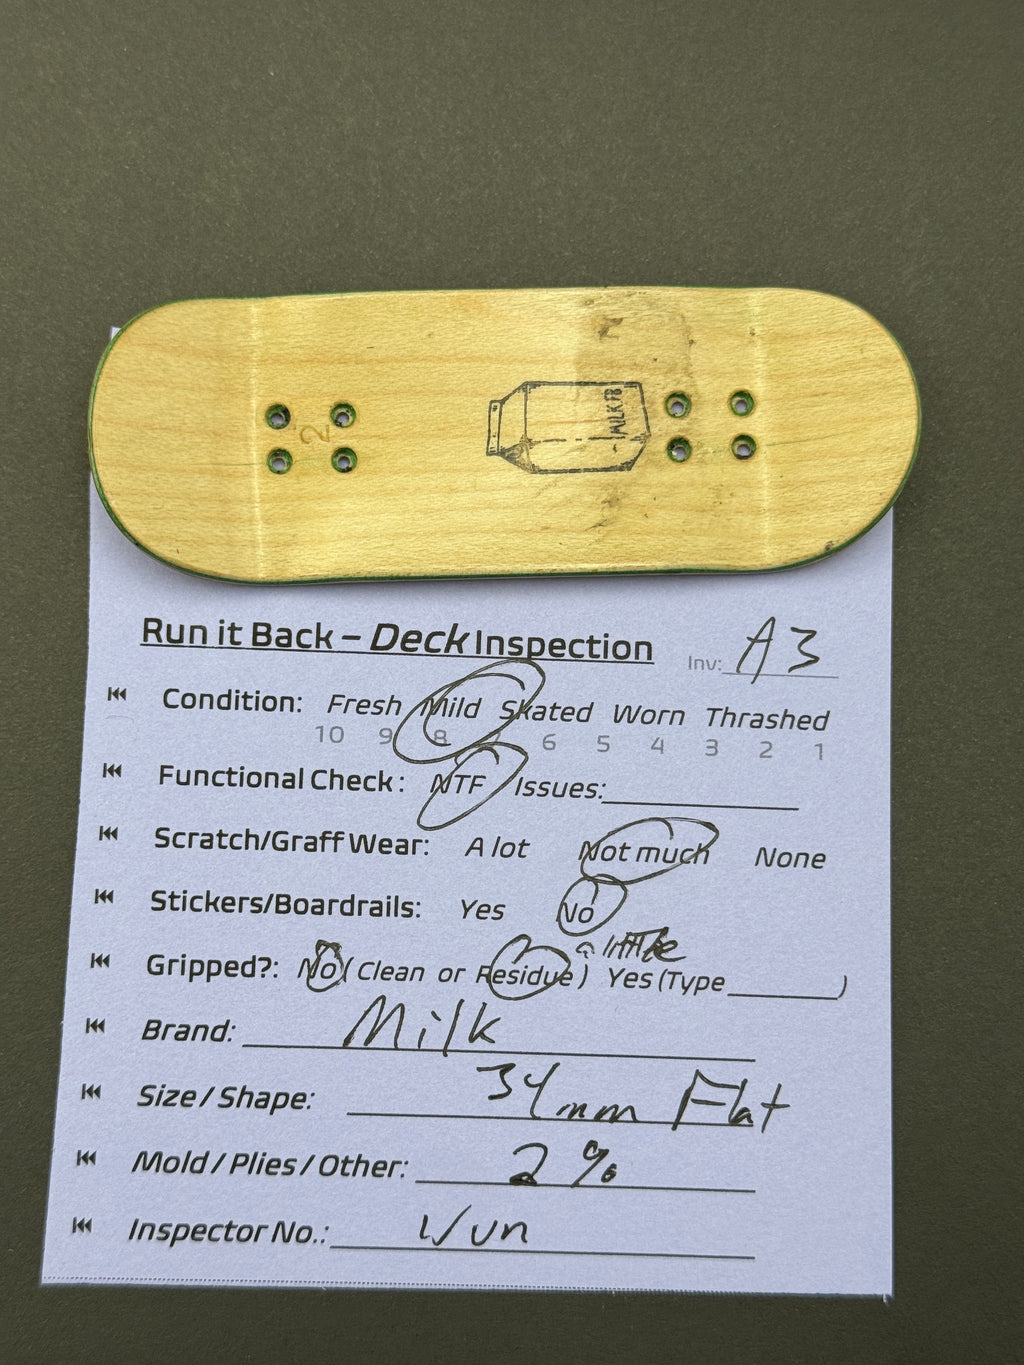 2
MILK FB
Run it Back – Deck Inspection Inv: A3
Condition: Fresh Mild Skated Worn Thrashed
10 9 8 7 6 5 4 3 2 1
Functional Check: NTF Issues:
Scratch/Graff Wear: A lot Not much None
Stickers/Boardrails: Yes No
a little
Gripped?: No (Clean or Residue) Yes (Type )
Brand: Milk
Size / Shape: 34mm Flat
Mold / Plies / Other: 2%
Inspector No.: